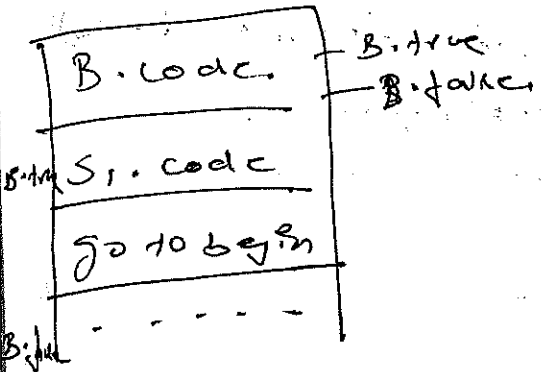 B.code.
B.true
B.false.
B.true S₁.code
go to begin
B.false - - - - -